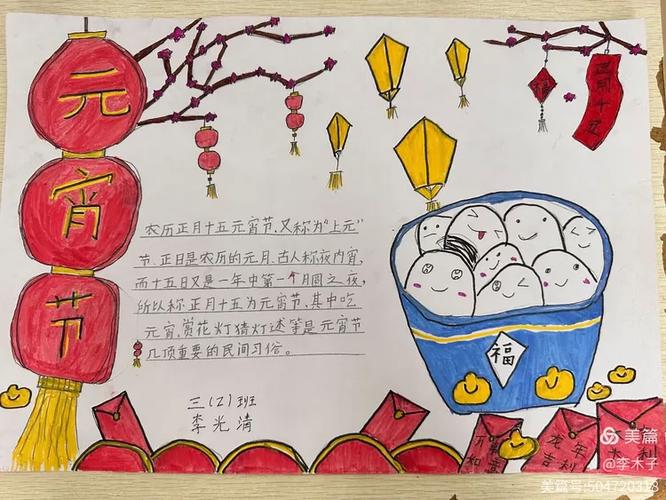 元
宵
节
正月十五
福
农历正月十五元宵节,又称为“上元”
节,正日是农历的元月,古人称夜内宵,
而十五日又是一年中第一个月圆之夜,
所以称正月十五为元宵节,其中吃
元宵,赏花灯猜灯迷等是元宵节
几项重要的民间习俗。
三(2)班
李光清
福
万事
如意
龙年
吉利
大利
美篇
@李木子
美篇号:504720318